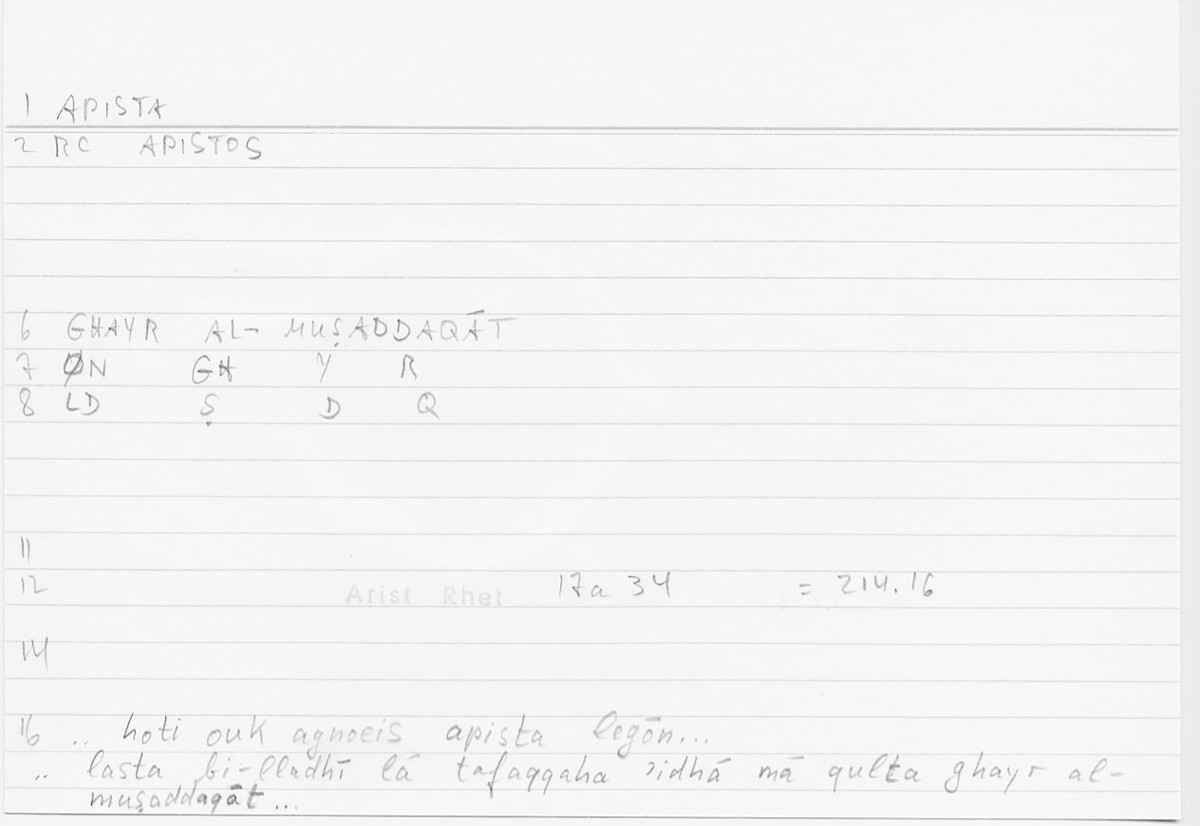 1 APISTA
2 RC APISTOS
6 GHAYR AL- MUṢADDAQĀT
7 ØN GH Y R
8 LD Ṣ D Q
11
12 Arist Rhet 17a 34 = 214.16
14
16 .. hoti ouk agnoeis apista legōn...
.. lasta bi-lladhī lā tafaqqaha ʾidhā mā qulta ghayr al-
muṣaddaqāt...